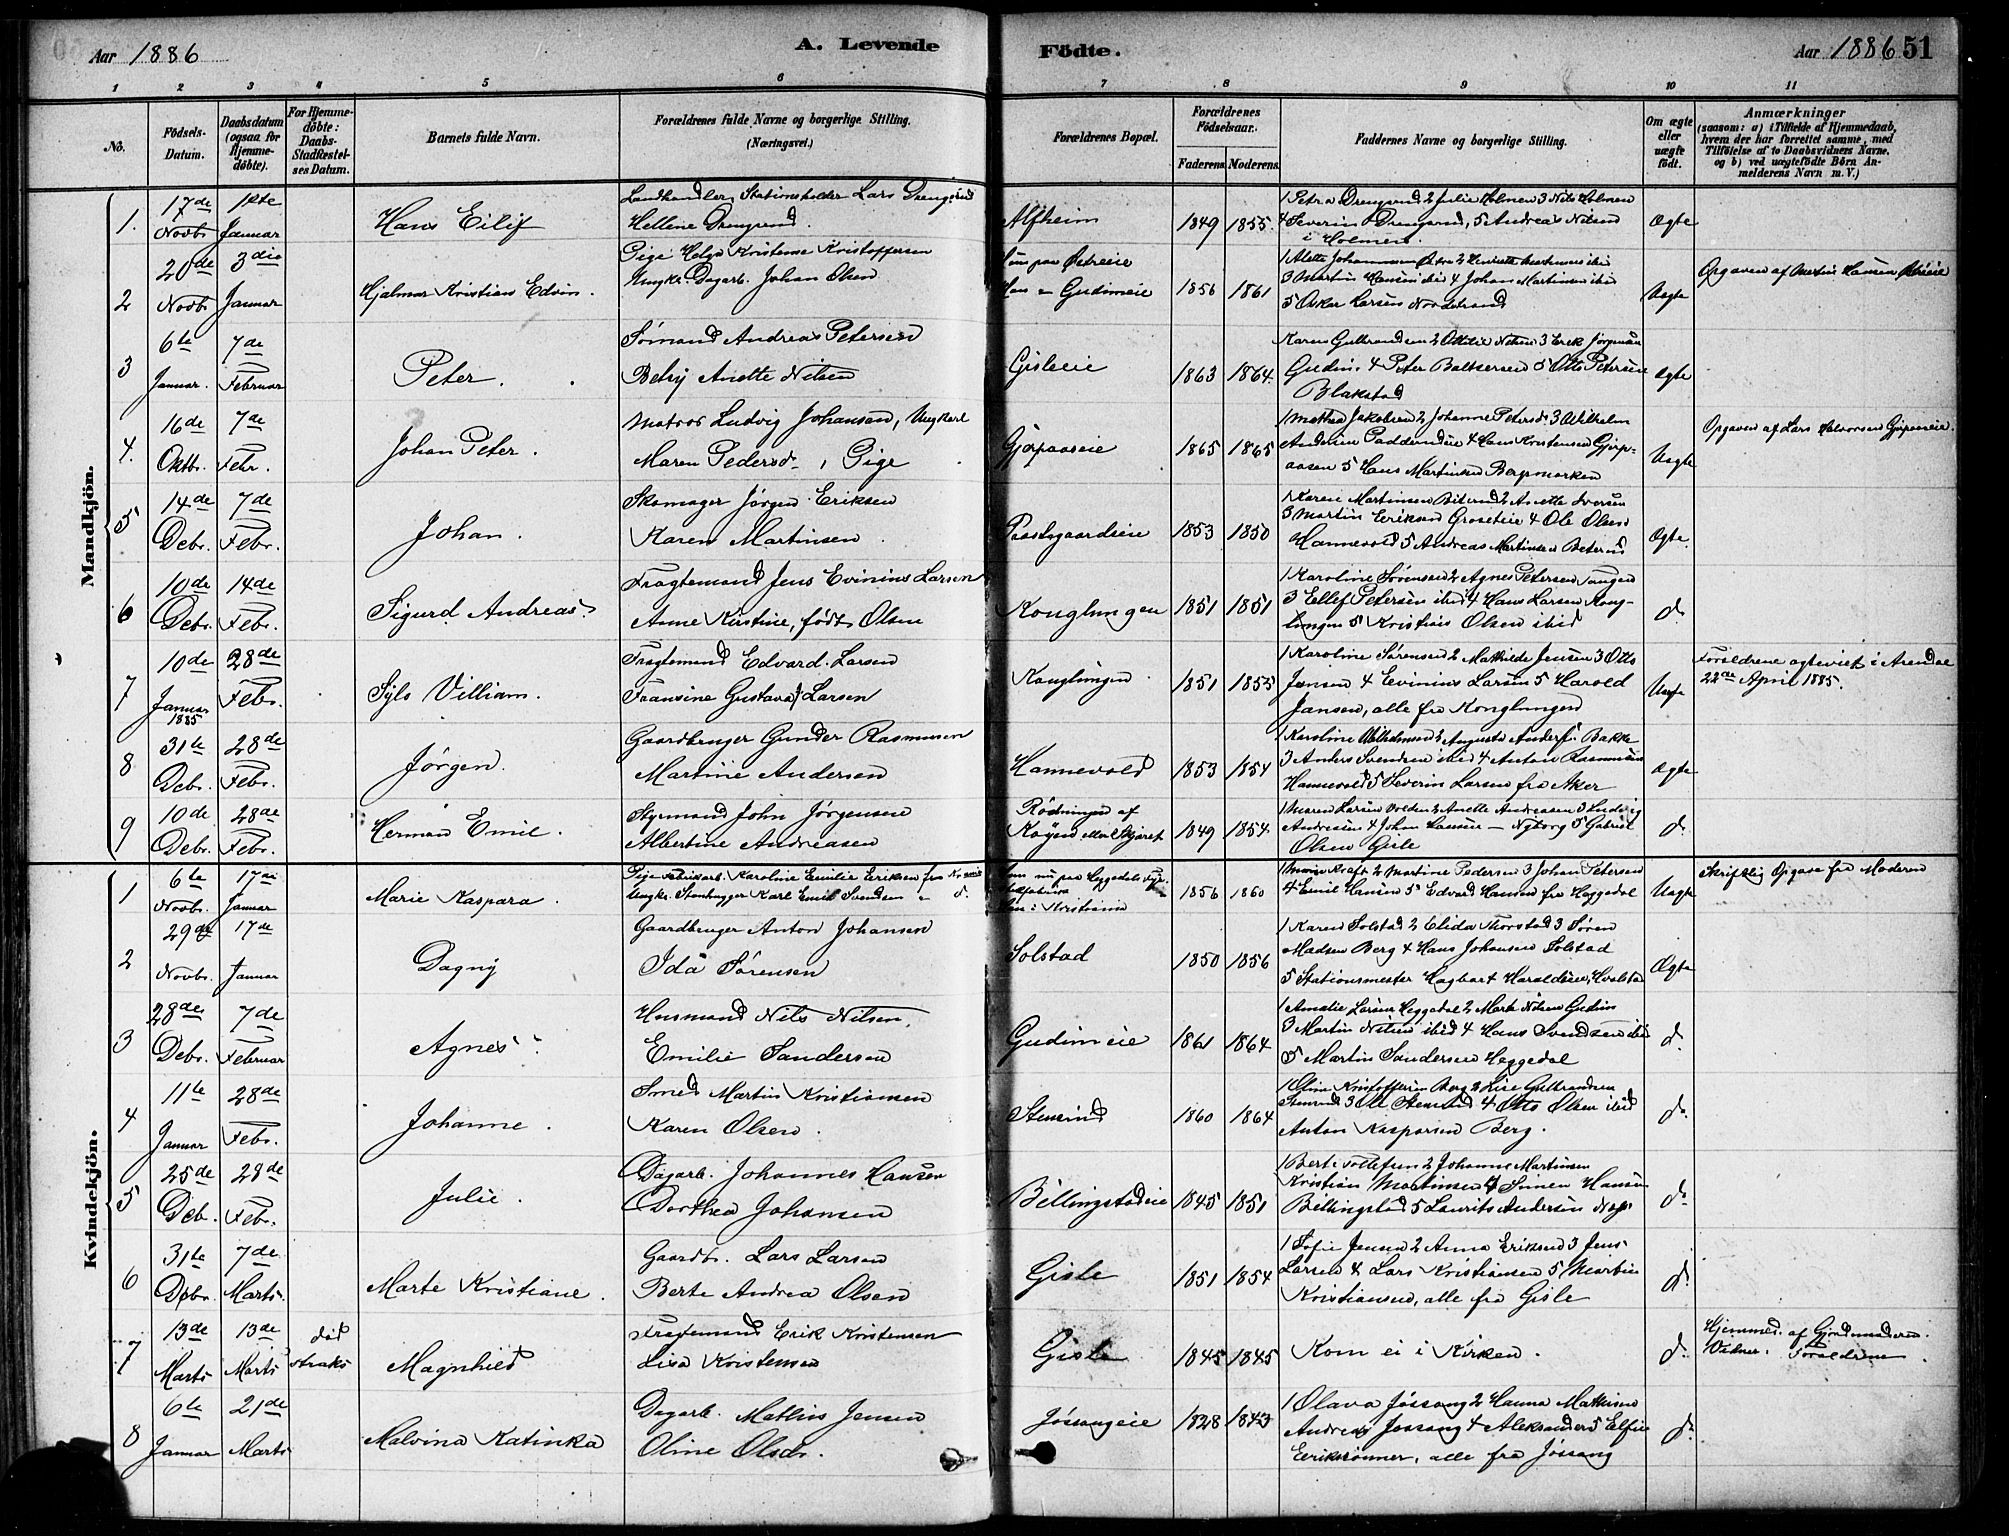 Aar 1886
A. Levende
Födte.
Aar 1886 51
1 2 3 4 5 6 7 8 9 10 11
No.
Födsels-Datum.
Daabsdatum (ogsaa for Hjemmedöbte).
For Hjemmedöbte: Daabs-Stadfæstelses Datum.
Barnets fulde Navn.
Forældrenes fulde Navne og borgerlige Stilling. (Næringsvei.)
Forældrenes Bopæl.
Forældrenes Födselsaar.
Faderens Moderens
Faddernes Navne og borgerlige Stilling.
Om ægte eller uægte födt.
Anmærkninger
(saasom: a) i Tilfælde af Hjemmedaab, hvem der har forrettet samme, med Tilföielse af to Daabsvidners Navne, og b) ved uægtefödte Börn Anmelderens Navn m. V.)
Mandkjön.
1. 17de Novbr 1ste Januar
Hans Eilif
Landhandler, Stationsholder Lars Drengsrud
Hellene Drengsrud
Alfheim 1849 1855
1 Petra Drengsrud 2 Julie Holmen 3 Nils Holmen
4 Severin Drengsrud, 5 Andreas Nilsen
i Holmen.
Ægte
2 20de Novbr 3die Januar
Hjalmar Kristian Edvin.
Pige Helga Kristine Kristoffersen
Ungkr. Dagarb. Johan Olsen
Hun paa Østreeie
Han - Gudimeie 1856 1861
3 Martin Hansen ibid 4 Johan Martinsen ibid
5 Oskar Larsen Nordstrand
Uægte
Opgaven af Martin Hansen Østreeie
3 6te Januar. 7de Februar
Peter.
Sømand Andreas Petersen
Betsy Anette Nilsen
Gisleeie 1863 1864
Karen Gulbrandsen 2 Ottilie Nilsen 3 Erik Jørgensen
Gudim 4 Peter Baltsersen 5 Otto Petersen
Blakstad
Ægte
4. 16de Oktbr. 7de Febr.
Johan Peter.
Matros Ludvig Johansen, Ungkarl
Maren Pedersd., Pige
Gjøpaaseie 1865 1865
1 Mathea Jakobsen 2 Johanne Petersd. 3 Vilhelm
aasen 5 Hans Martinsen Bergsmarken
Uægte
Opgaven af Lars Halvorsen
5 14de Debr. 7de Febr.
Johan.
Skomager Jørgen Eriksen
Karen Martinsen
1853 1850
3 Martin Eriksen 4 Ole Olsen
Hannevold 5 Andreas Martinsen
Ægte.
6 10de Debr. 14de Febr.
Sigurd Andreas.
Fragtemand Jens Evinius Larsen
Anne Kirstine, født Olsen
Konglungen 1851 1851
1 Karoline Sørensen 2 Agnes Petersen Tangen
3 Ellef Petersen ibid 4 Hans Larsen Kong-
lungen 5 Kristian Olsen ibid
do
7 10de Januar 1885 28de Febr.
Syls Villiam.
Fragtemand Edvard Larsen
Fransine Gustava Larsen
Konglungen 1851 1855
1 Karoline Sørensen 2 Mathilde Jensen 3 Otto
Jensen 4 Evinius Larsen 5 Harald
Jansen, alle fra Konglungen
Uægte
Forældrene ægteviet i Arendal
22de April 1885.
8 31te Debr. 28de Febr.
Jørgen.
Gaardbruger Gunder Rasmusen
Martine Andersen
Hannevold 1853 1854
1 Karoline Wilhelmsen 2 Augusta Anders. Bakke
3 Anders Svendsen ibid 4 Anton Rasmusen
Hannevold 5 Severin Larsen fra Aker
Ægte
9 10de Debr. 28de Febr.
Herman Emil.
Styrmand John Jørgensen
Albertine Andreasen
Rødningen af
Røyen 1849 1854
1 Maren Larsen Volden 2 Anette Andreasen 3 Ludvig
Andresen 4 Johan Hansen - Nyborg 5 Gabriel
Olsen Gisle
do
Kvindekjön.
1 6te Novbr. 17de Januar
Marie Kaspara.
Pige Karoline Emilie Eriksen fra
Ungkr. Stenhugger Karl Emil Svendsen
Han i Kristiania 1856 1860
2 Martine Pedersen 3 Johan Petersen
4 Emil Hansen 5 Edvard Hansen fra Heggedal
Uægte
Skriftlig Opgave fra Moderen
2 29de Novbr. 17de Januar
Dagny
Gaardbruger Anton Johansen
Ida Sørensen
Solstad 1850 1856
1 Karen Solstad 2 Elida Thorstad 3 Søren
Madsen Berg 4 Hans Johansen Solstad
5 Stationsmester Hagbart Haraldsen, Hvalstad
Ægte
3 28de Debr. 7de Februar
Agnes
Husmand Nils Nilsen,
Emilie Sandersen
Gudimeie 1861 1864
1 Amalie Larsen Heggedal 2 Marte Nilsen Gudim
3 Martin Nilsen ibid 4 Hans Svendsen ibid
5 Martin Sandersen Heggedal
do
4 11te Januar 28de Febr.
Johanne.
Smed Martin Kristiansen
Karen Olsen.
Stensrud 1860 1864
1 Oline Kristoffersen Berg 2 Lise Gulbrandsen
Stensrud 3 Ole Stensrud 4 Otto Olsen ibid
Anton Kasparsen Berg.
do
5 25de Debr. 28de Febr.
Julie.
Dagarb. Johannes Hansen
Dorthea Johansen
Billingstadeie 1845 1851
1 Berte Tollefsen 2 Johanne Martinsen
Kristian Martinsen 4 Simen Hansen
Billingstad 5 Laurits Andersen
do
6 31te Debr. 7de Marts.
Marte Kristiane.
Gaardb. Lars Larsen
Berte Andrea Olsen
Gisle 1851 1854
1 Sofie Jensen 2 Anna Eriksen 3 Jens
Larsen 4 Lars Kristiansen 5 Martin
Kristiansen, alle fra Gisle
do
7 13de Marts 13de Marts død straks
Magnhild
Fragtemand Erik Kristensen
Lisa Kristensen
Gisle 1845 1845
Kom ei i Kirken.
do
Hjemmed. af Gjordmoderen.
Vidner: Forældrene.
8 6te Januar 21de Marts
Malvina Katinka
Dagarb. Mathias Jensen
Oline Olsdr.
Jøssangeie 1828 1843
1 Olava Jøssang 2 Hanna Mathisen
Andreas Jøssang 4 Aleksander 5 Elfin
Erikssønner, alle fra Jøssang
do